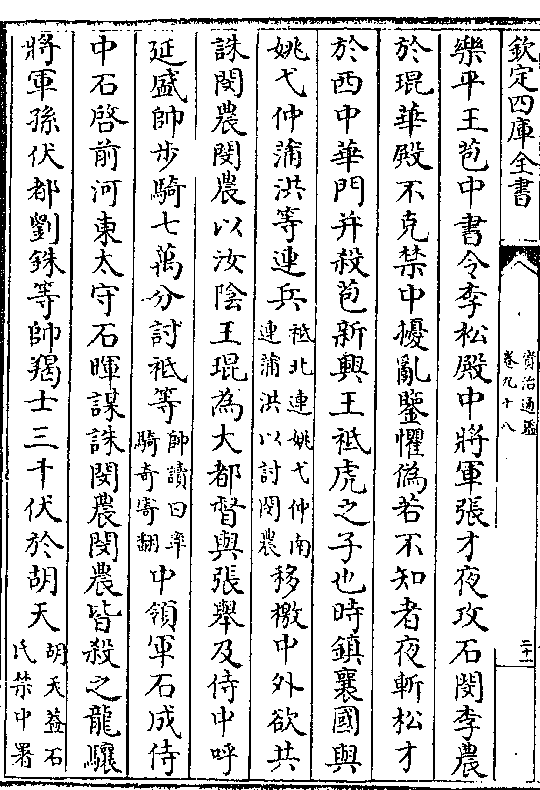 欽定四庫全書
資治通鑑
卷九十八
二十一
樂平王苞中書令李松殿中將軍張才夜攻石閔李農
於琨華殿不克禁中擾亂鑒懼偽若不知者夜斬松才
於西中華門并殺苞新興王祗虎之子也時鎮襄國與
姚弋仲蒲洪等連兵祗北連姚弋仲南連蒲洪以討閔農移檄中外欲共
誅閔農閔農以汝陰王琨為大都督與張舉及侍中呼
延盛帥步騎七萬分討祗等帥讀曰率騎奇寄翻中領軍石成侍
中石啓前河東太守石暉謀誅閔農閔農皆殺之龍驤
將軍孫伏都劉銖等帥羯士三千伏於胡天胡天蓋石氏禁中署